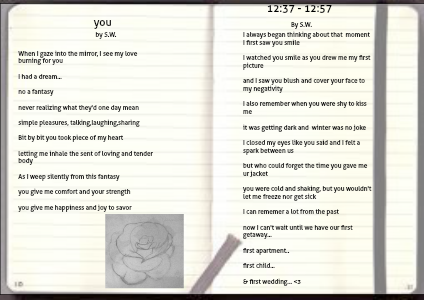 you
by S.W.
When I gaze into the mirror, I see my love
burning for you
I had a dream...
no a fantasy
never realizing what they'd one day mean
simple pleasures, talking,laughing,sharing
Bit by bit you took piece of my heart
letting me inhale the sent of loving and tender
body
As I weep silently from this fantasy
you give me comfort and your strength
you give me happiness and joy to savor
12:37 - 12:57
By S.W.
I always began thinking about that moment
I first saw you smile
I watched you smile as you drew me my first
picture
and I saw you blush and cover your face to
my negativity
I also remember when you were shy to kiss
me
it was getting dark and winter was no joke
I closed my eyes like you said and I felt a
spark between us
but who could forget the time you gave me
ur jacket
you were cold and shaking, but you wouldn't
let me freeze nor get sick
I can rememer a lot from the past
now I can't wait until we have our first
getaway...
first apartment..
first child...
& first wedding... <3